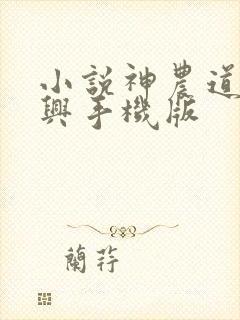 小說神農道
興手機版
蘭荇